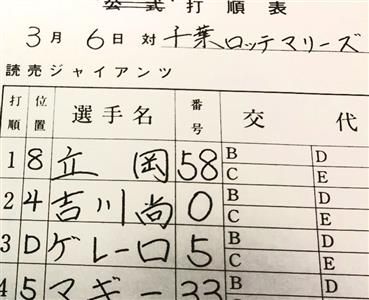 公式打順表
3月6日 対 千葉ロッテマリーズ
読売ジャイアンツ
打順 位置 選手名 番号 交代
1 8 立岡 58 B D
C E
2 4 吉川尚 0 B D
C E
3 D ゲレーロ 5 B D
C E
4 5 マギー 33 B D